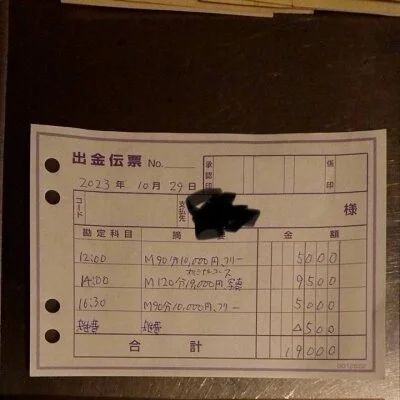 出金伝票 No.
承認印 係印
2023年 10月 29日
コード 支払先 様
勘定科目 摘要 金額
12:00 M90分10,000円、フリー 5000
コース
14:00 M120分19,000円、写真 9500
16:30 M90分10,000円、フリー 5000
雑費 雑費 △500
合計 19000